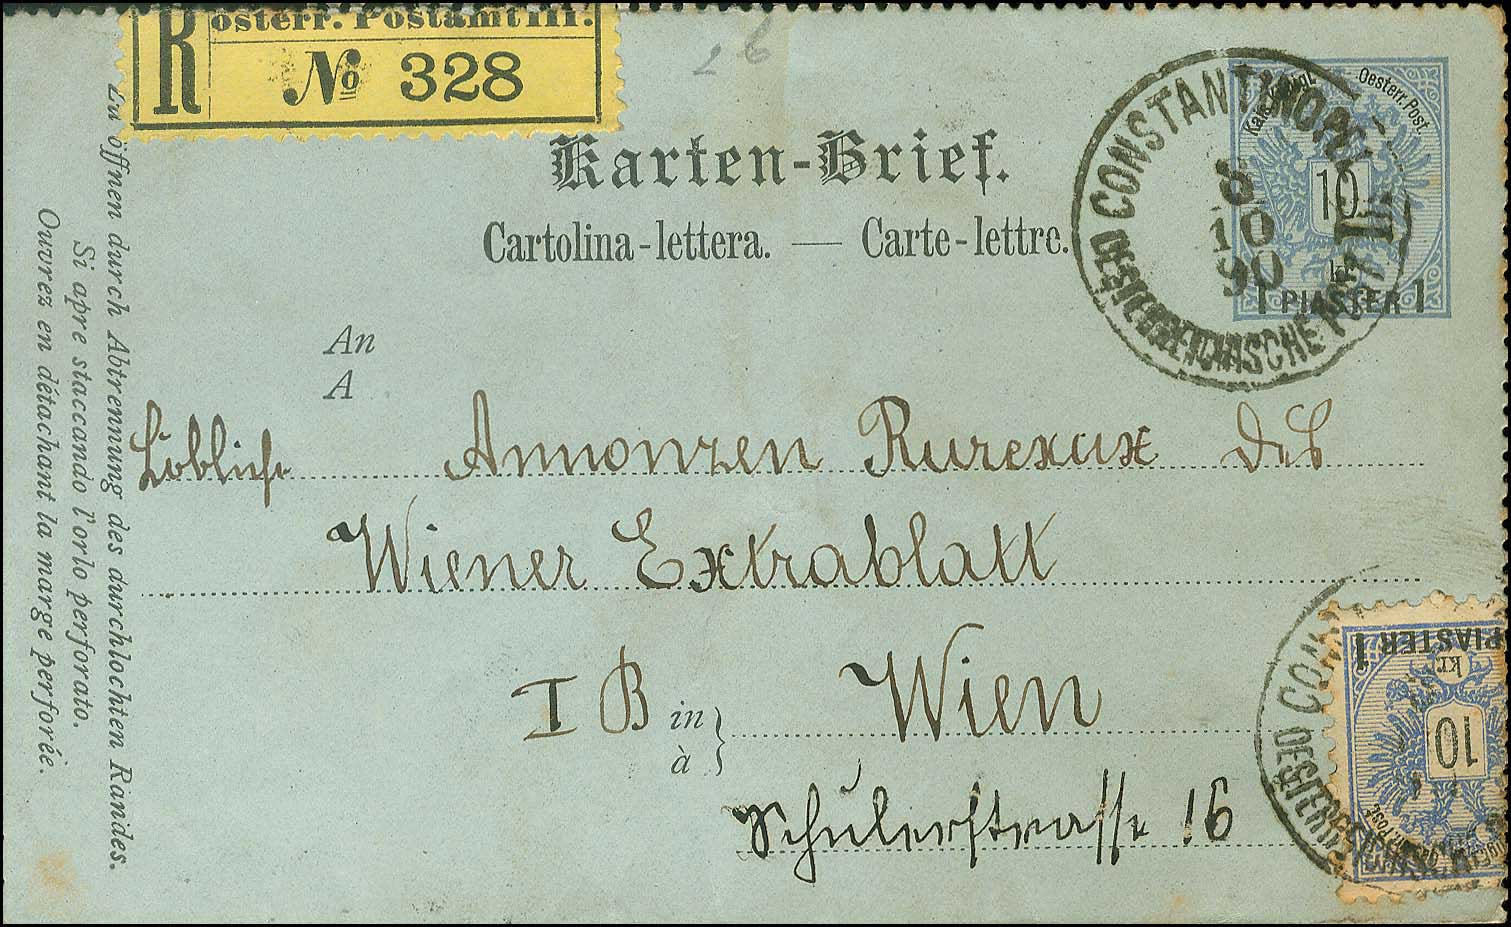 R österr. Postamt III.
No 328
26
Karten-Brief.
Cartolina-lettera. — Carte-lettre.
Kais. Königl. Oesterr. Post.
10
kr
1 PIASTER 1
CONSTANTINOPEL II
8
10
90
OESTERREICHISCHE POST
An
A
Löbliche Annonzen Bureaux des
Wiener Extrablatt
I B in Wien
à
Schülerstrasse 16
Zu öffnen durch Abtrennung des durchlochten Randes.
Si apre staccando l'orlo perforato.
Ouvrez en détachant la marge perforée.
PIASTER 1
kr.
10
CON
OESTERREICHISCHE